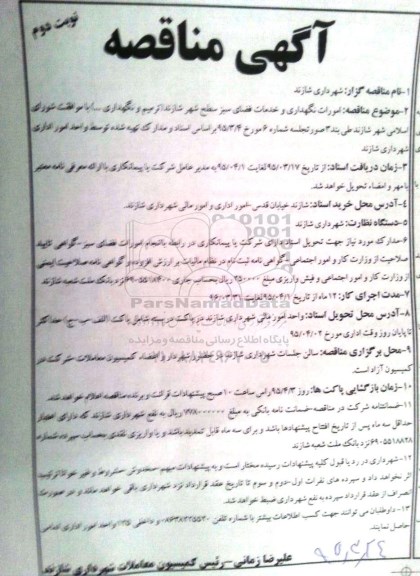 نوبت دوم
آگهی مناقصه
۱-نام مناقصه گزار: شهرداری شازند
۲-موضوع مناقصه: امورات نگهداری و خدمات فضای سبز سطح شهر شازند(ترمیم و نگهداری ...)با موافقت شورای
اسلامی شهر شازند طی بند ۳ صورتجلسه شماره ۶ مورخ ۹۵/۳/۴ براساس اسناد و مدارک تهیه شده توسط واحد امور اداری
شهرداری شازند
۳-زمان دریافت اسناد: از تاریخ ۹۵/۰۳/۱۷ لغایت ۹۵/۰۴/۱ به مدیر عامل شرکت یا پیمانکاری با ارائه معرفی نامه معتبر
با مهر و امضاء تحویل خواهد شد.
۴-آدرس محل خرید اسناد: شازند خیابان قدس -امور اداری و امور مالی شهرداری شازند.
۵-دستگاه نظارت: شهرداری شازند
۶-مدارک مورد نیاز جهت تحویل اسناد دارای شرکت یا پیمانکاری در رابطه با انجام امورات فضای سبز-گواهی تایید
صلاحیت از وزارت کار و امور اجتماعی-گواهی نامه ثبت نام در نظام مالیات بر ارزش افزوده و گواهی نامه صلاحیت ایمنی
از وزارت کار و امور اجتماعی و فیش واریزی مبلغ ۲۵۰۰۰۰ ریال بحساب جاری نزد بانک ملت شعبه شازند
۷-مدت اجرای کار: ۱۲ ماه از تاریخ ۹۵/۰۴/۱ لغایت
ParsNamadData
پایگاه اطلاع رسانی مناقصه و مزایده
۸-آدرس محل تحویل اسناد: واحد امور مالی شهرداری شازند در پاکت در بسته شامل پاکت (الف-ب-ج) حداکثر
تا پایان روز وقت اداری مورخ ۹۵/۰۴/۰۲
۹-محل برگزاری مناقصه: سالن جلسات شهرداری شازند با حضور شهردار و اعضاء کمیسیون معاملات شرکت در
کمیسیون آزاد است.
۱۰-زمان بازگشایی پاکت ها: روز ۹۵/۴/۳ راس ساعت ۱۰ صبح پیشنهادات قرائت و برنده مناقصه اعلام خواهند شد.
۱۱-ضمانتنامه شرکت در مناقصه-ضمانت نامه بانکی به مبلغ ریال به نفع شهرداری شازند که دارای اعتبار
حداقل سه ماه پس از تاریخ افتتاح پیشنهادها باشد و برای سه ماه قابل تمدید باشد و یا واریزی نقدی بحساب سپرده شماره
نزد بانک ملت شعبه شازند
۱۲-شهرداری در رد یا قبول کلیه پیشنهادات رسیده مختار است و به پیشنهادات مبهم -مخدوش -مشروط و غیر خوانا ترتیب
اثر نخواهد داد و سپرده های نفرات اول-دوم و سوم تا تاریخ عقد قرارداد نزد شهرداری باقی خواهد ماند و در صورت
انصراف از عقد قرارداد سپرده به نفع شهرداری ضبط خواهد شد.
۱۳-داوطلبان می توانند جهت کسب اطلاعات بیشتر با شماره تلفن و داخلی واحد امور اداری تماس
حاصل نمایند.
علیرضا زمانی-رئیس کمیسیون معاملات شهرداری شازند